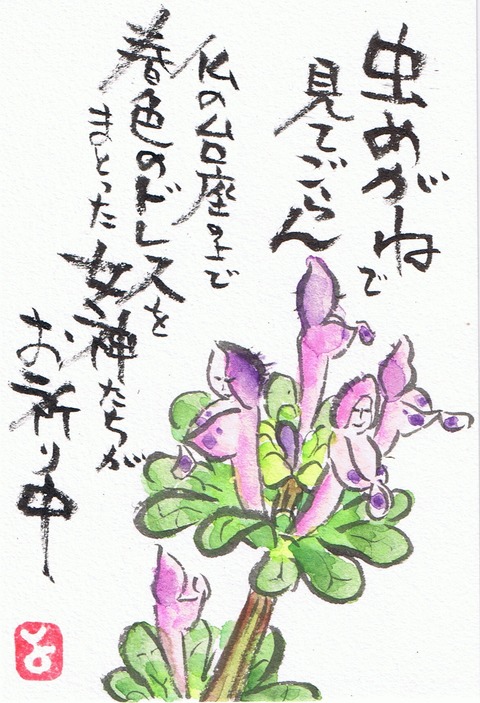 虫めがねで
見てごらん
仏の台座の上で
春色のドレスを
まとった
女神たちが
お祈り中